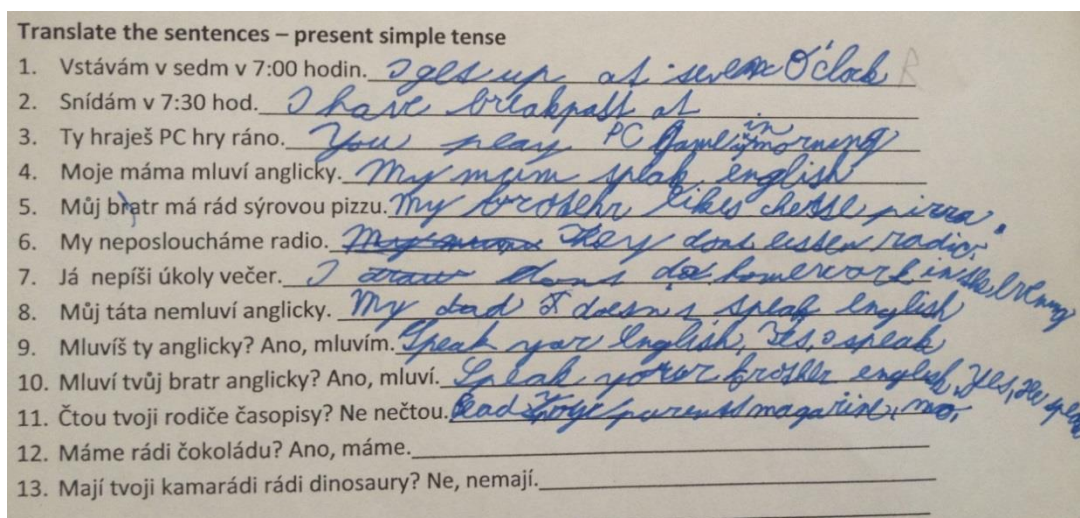 Translate the sentences – present simple tense
1. Vstávám v sedm v 7:00 hodin. I get up at seven O'clock R
2. Snídám v 7:30 hod. I have breakpast at
3. Ty hraješ PC hry ráno. You play PC Game in morning
4. Moje máma mluví anglicky. My mum speak english
5. Můj bratr má rád sýrovou pizzu. My brotehr likes cheese pizza.
6. My neposloucháme radio. They dont listen radio.
7. Já nepíši úkoly večer. I dont do homework in the evening
8. Můj táta nemluví anglicky. My dad doesn't speak english
9. Mluvíš ty anglicky? Ano, mluvím. Speak your English, Yes, I speak
10. Mluví tvůj bratr anglicky? Ano, mluví. Speak your brother english, Yes, He speak
11. Čtou tvoji rodiče časopisy? Ne nečtou. Read parents magazine, no,
12. Máme rádi čokoládu? Ano, máme.
13. Mají tvoji kamarádi rádi dinosaury? Ne, nemají.